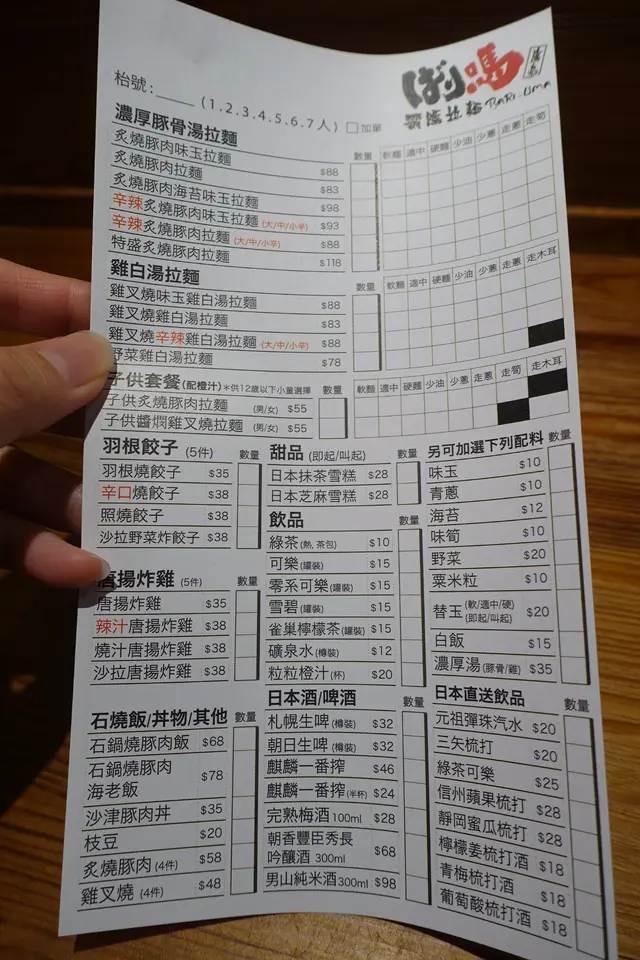 ばり嗎
BARI-UMA
枱號：____ (1.2.3.4.5.6.7人) □加單
濃厚豚骨湯拉麵 數量 軟麵 適中 硬麵 少油 少蔥 走蔥 走筍
炙燒豚肉味玉拉麵 $88
炙燒豚肉拉麵 $83
炙燒豚肉海苔味玉拉麵 $98
辛辣炙燒豚肉味玉拉麵 (大/中/小辛) $93
辛辣炙燒豚肉拉麵 (大/中/小辛) $88
特盛炙燒豚肉拉麵 $118
雞白湯拉麵 數量 軟麵 適中 硬麵 少油 少蔥 走蔥 走木耳
雞叉燒味玉雞白湯拉麵 $88
雞叉燒雞白湯拉麵 $83
雞叉燒辛辣雞白湯拉麵 (大/中/小辛) $88
野菜雞白湯拉麵 $78
子供套餐 (配橙汁) *供12歲以下小童選擇 數量 軟麵 適中 硬麵 少油 少蔥 走蔥 走筍 走木耳
子供炙燒豚肉拉麵 (男/女) $55
子供醬燜雞叉燒拉麵 (男/女) $55
羽根餃子 (5件) 數量
羽根燒餃子 $35
辛口燒餃子 $38
照燒餃子 $38
沙拉野菜炸餃子 $38
唐揚炸雞 (5件) 數量
唐揚炸雞 $35
辣汁唐揚炸雞 $38
燒汁唐揚炸雞 $38
沙拉唐揚炸雞 $38
石燒飯/丼物/其他 數量
石鍋燒豚肉飯 $68
石鍋燒豚肉
海老飯 $78
沙津豚肉丼 $35
枝豆 $20
炙燒豚肉 (4件) $58
雞叉燒 (4件) $48
甜品 (即起/叫起) 數量
日本抹茶雪糕 $28
日本芝麻雪糕 $28
飲品 數量
綠茶 (熱,茶包) $10
可樂 (罐裝) $15
零系可樂 (罐裝) $15
雪碧 (罐裝) $15
雀巢檸檬茶 (罐裝) $15
礦泉水 (樽裝) $12
粒粒橙汁 (杯) $20
日本酒/啤酒 數量
札幌生啤 (樽裝) $32
朝日生啤 (樽裝) $32
麒麟一番搾 $46
麒麟一番搾 (半杯) $24
完熟梅酒 100ml $28
朝香豐臣秀長
吟釀酒 300ml $68
男山純米酒 300ml $98
另可加選下列配料 數量
味玉 $10
青蔥 $10
海苔 $12
味筍 $10
野菜 $20
粟米粒 $10
替玉 (軟/適中/硬) (即起/叫起) $20
白飯 $15
濃厚湯 (豚骨/雞) $35
日本直送飲品 數量
元祖彈珠汽水 $20
三矢梳打 $20
綠茶可樂 $25
信州蘋果梳打 $28
靜岡蜜瓜梳打 $28
檸檬姜梳打酒 $18
青梅梳打酒 $18
葡萄酸梳打酒 $18